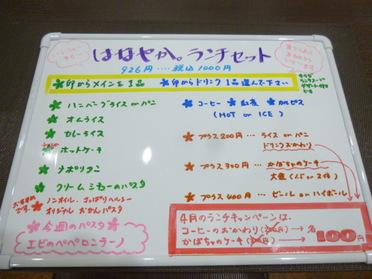 はなやか。ランチセット
926円‥‥税込1000円
✽印からメインを1品 ✽印からドリンク1品選んで下さい
✽ハンバーグライス or パン
✽オムライス
✽カレーライス
✽ホットケーキ
✽ナポリタン
✽クリームシチューのパスタ
✽ノンオイル、さっぱりヘルシー
オリジナルおかんパスタ
✽今週のパスタ
エビのペペロンチーノ
✽コーヒー ✽紅茶 ✽カルピス
(HOT or ICE)
✽プラス200円‥‥ライス or パン
ドリンクおかわり
✽プラス300円‥‥かぼちゃのケーキ
✽プラス400円‥‥ビール or ハイボール
4月のランチキャンペーンは、
コーヒーのおかわり
かぼちゃのケーキ
→各100円